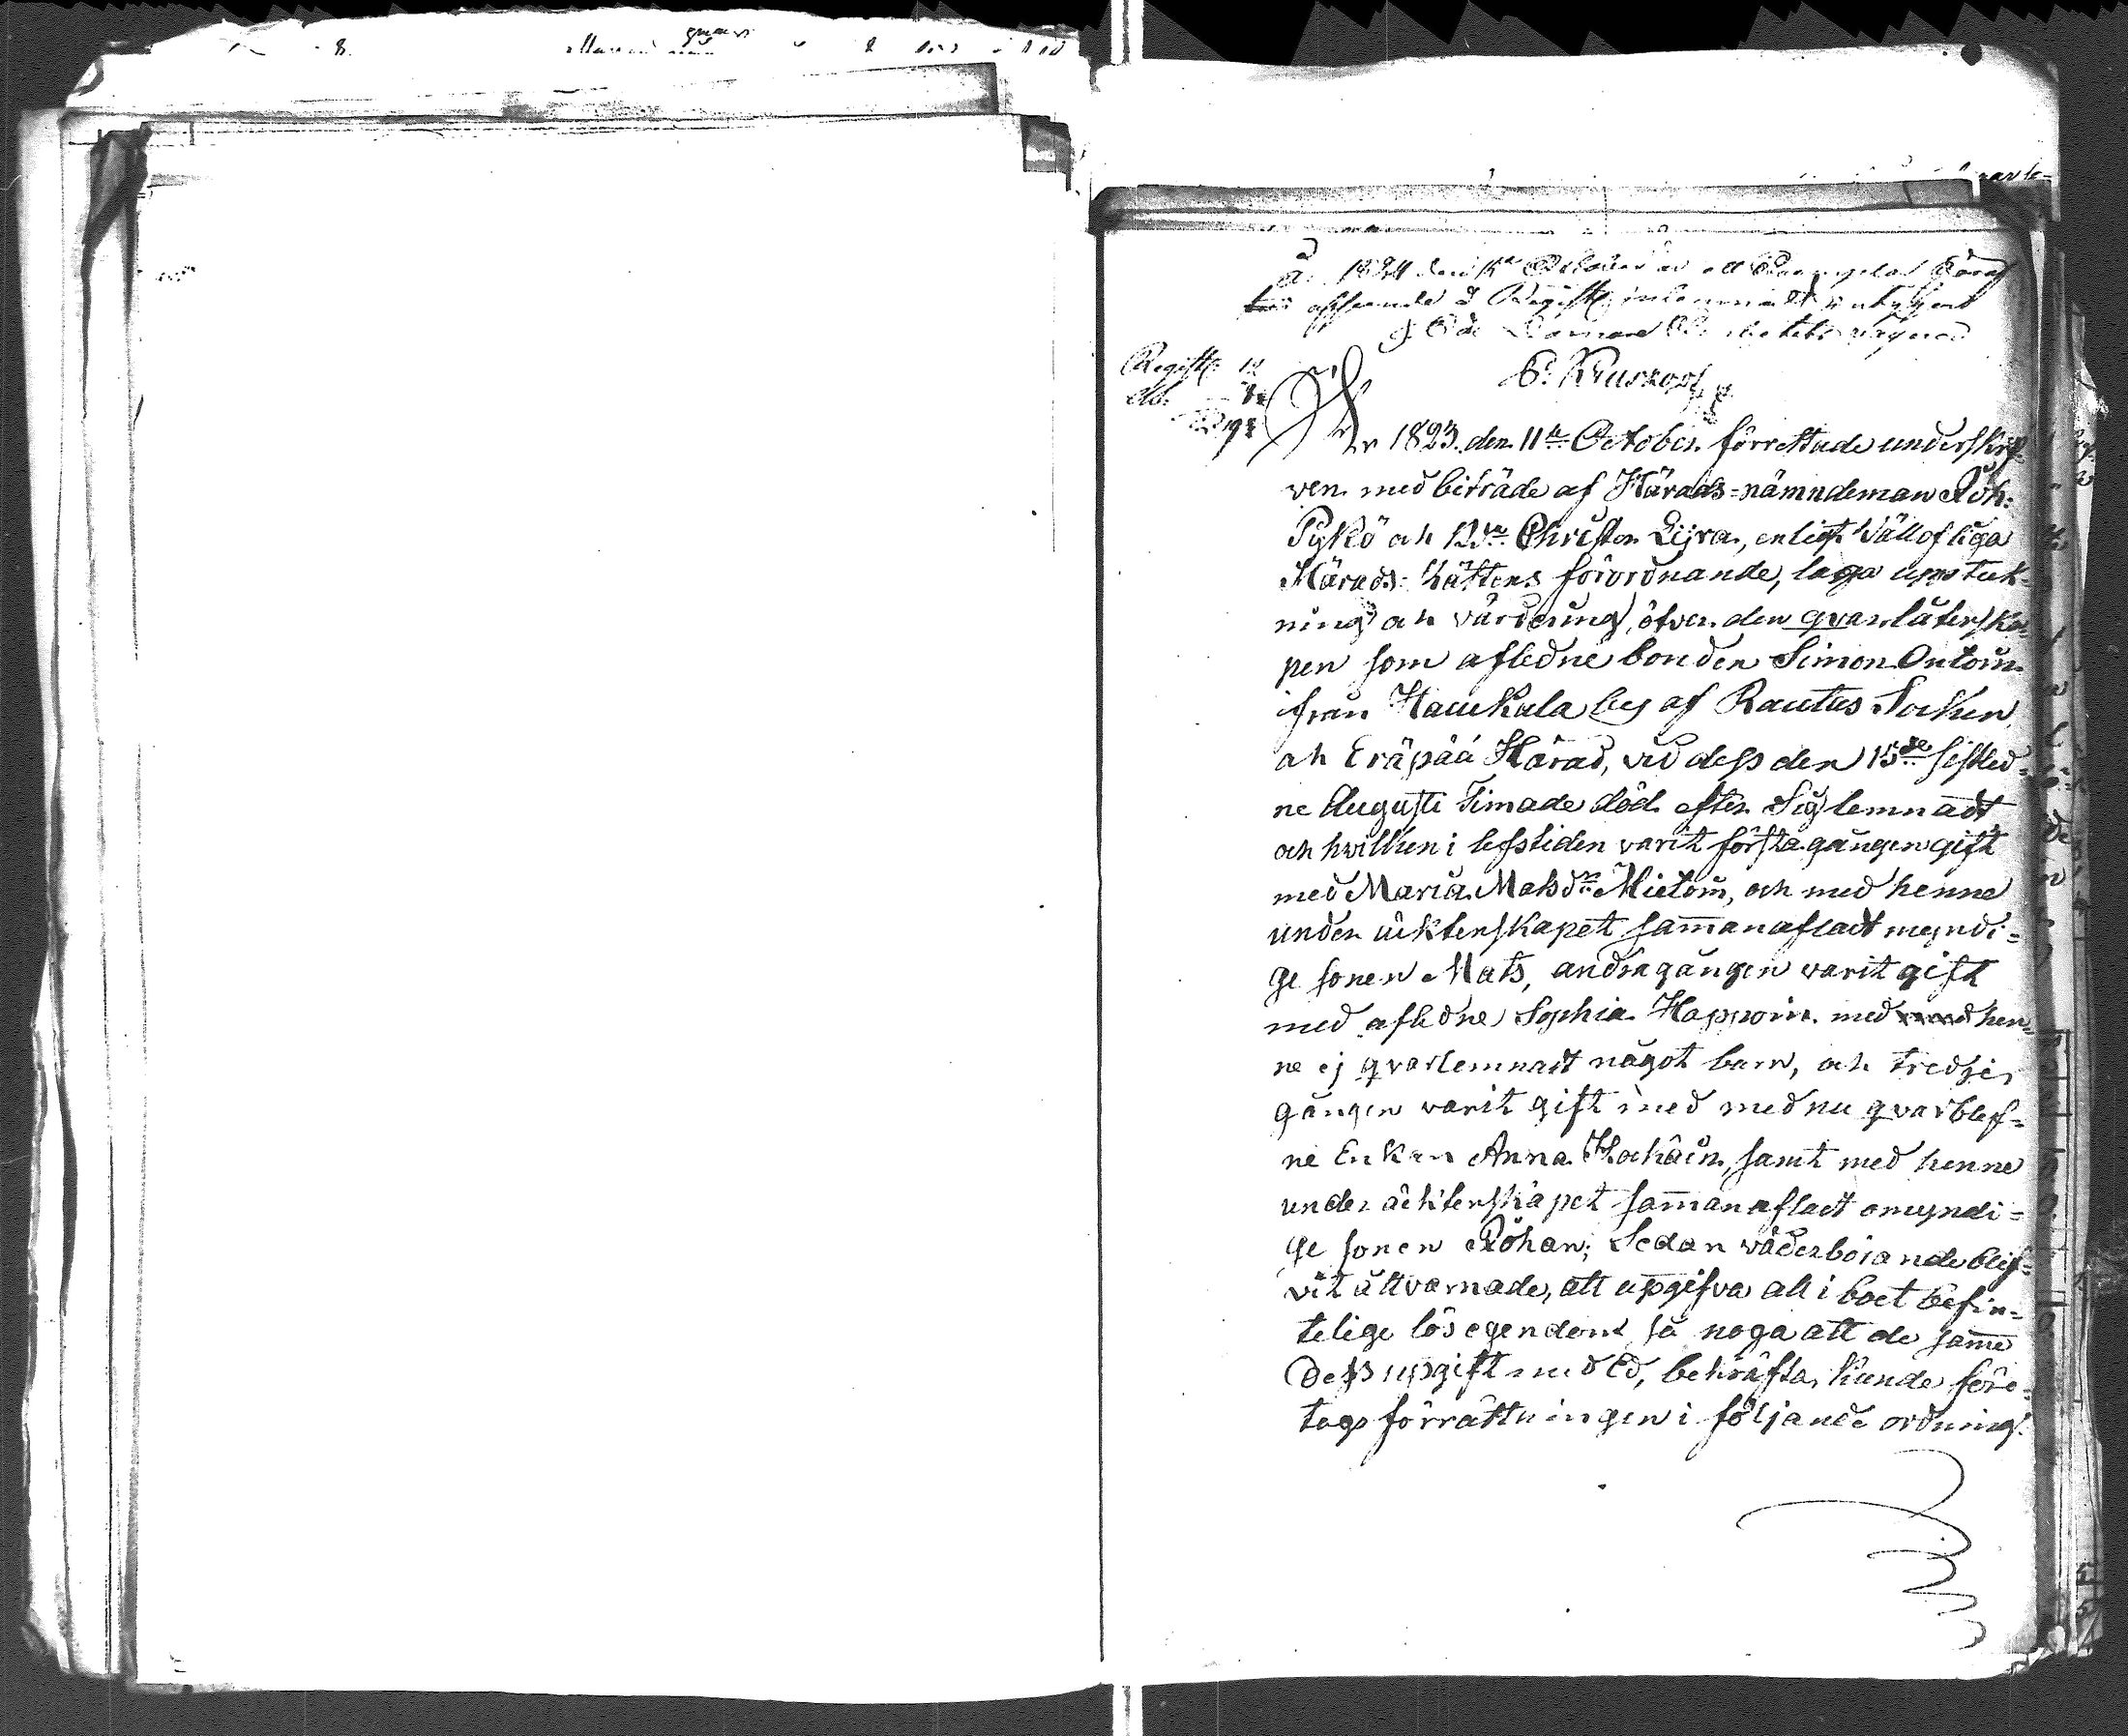 År 1824 den 1a October
afseende
P: Kruskopf
År 1823 den 11te October förrettade underskrif-
ven med biträde af Härads=nämndeman Joh:
Pykö och Christer Leijra, enligt Vällofliga
Härads=Rättens förordnande, laga uppteck-
ning och värdering öfver den qvarlåtenska-
pen som afledne bonden Simon Ontoin
ifrån Haukala by af Rautus Socken
och Eräpää Härad, vid dess den 15de sistled-
ne Augusti Timade död efter Sig lemnadt
och hvilken i lifstiden varit första gången gift
med Maria Matsdr Mietoin, och med henne
under ächtenskapet sam̄anafladt myndi=
ge sonen Mats, andra gången varit gift
med afledne Sophia Happoin med hen=
ne ej qvarlemnadt något barn, och tredje
gången varit gift med med nu qvarblef=
ne Enkan Anna samt med henne
under ächtenskapet sam̄anaflat omyndi=
ge sonen Johan; Sedan vederbörande blif=
vit åttvarnade, att upgifva all i boet befin=
telige lösegendom så noga att de sam̄e
Dess upgift med Ed, bekräfta kunde före=
togs förrättningen i följande ordning.